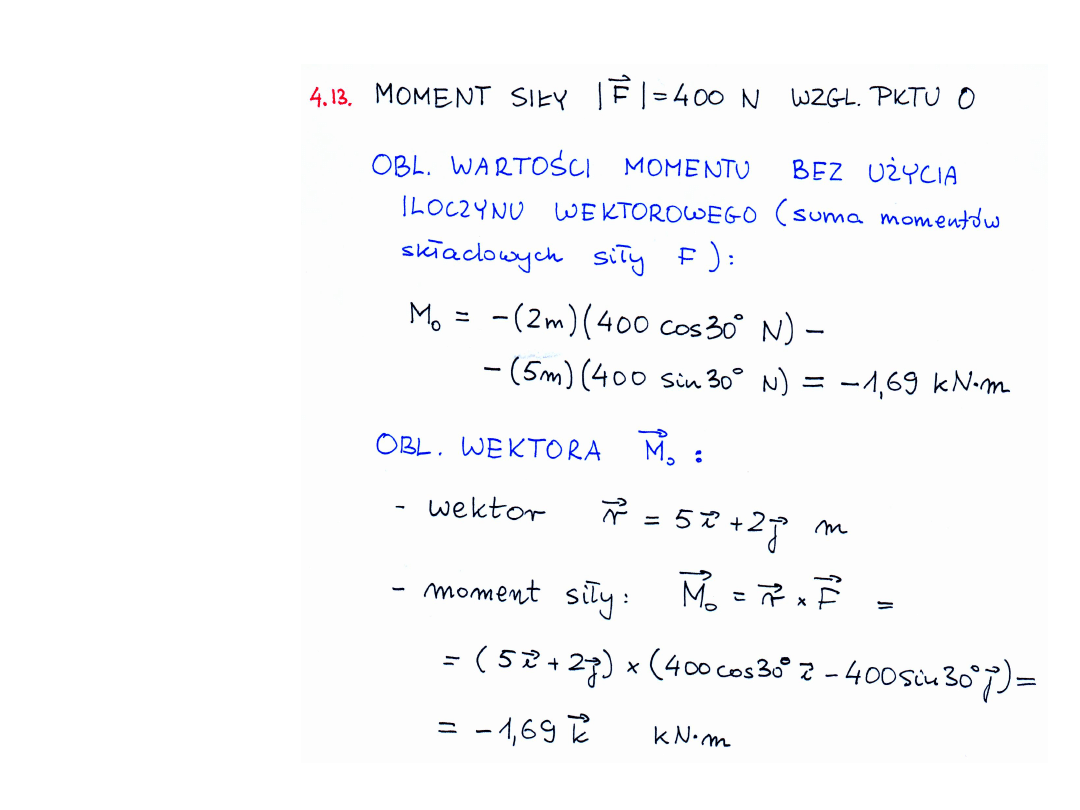 4.13. MOMENT SIŁY |F⃗| = 400 N WZGL. PKTU O
OBL. WARTOŚCI MOMENTU BEZ UŻYCIA
ILOCZYNU WEKTOROWEGO (suma momentów
składowych siły F):
M₀ = -(2m)(400 cos30° N) -
-(5m)(400 sin 30° N) = -1,69 kN·m
OBL. WEKTORA M⃗₀ :
- wektor r⃗ = 5i⃗ + 2j⃗ m
- moment siły: M⃗₀ = r⃗ × F⃗ =
= (5i⃗ + 2j⃗) × (400cos30° i⃗ - 400sin30° j⃗) =
= -1,69 k⃗ kN·m